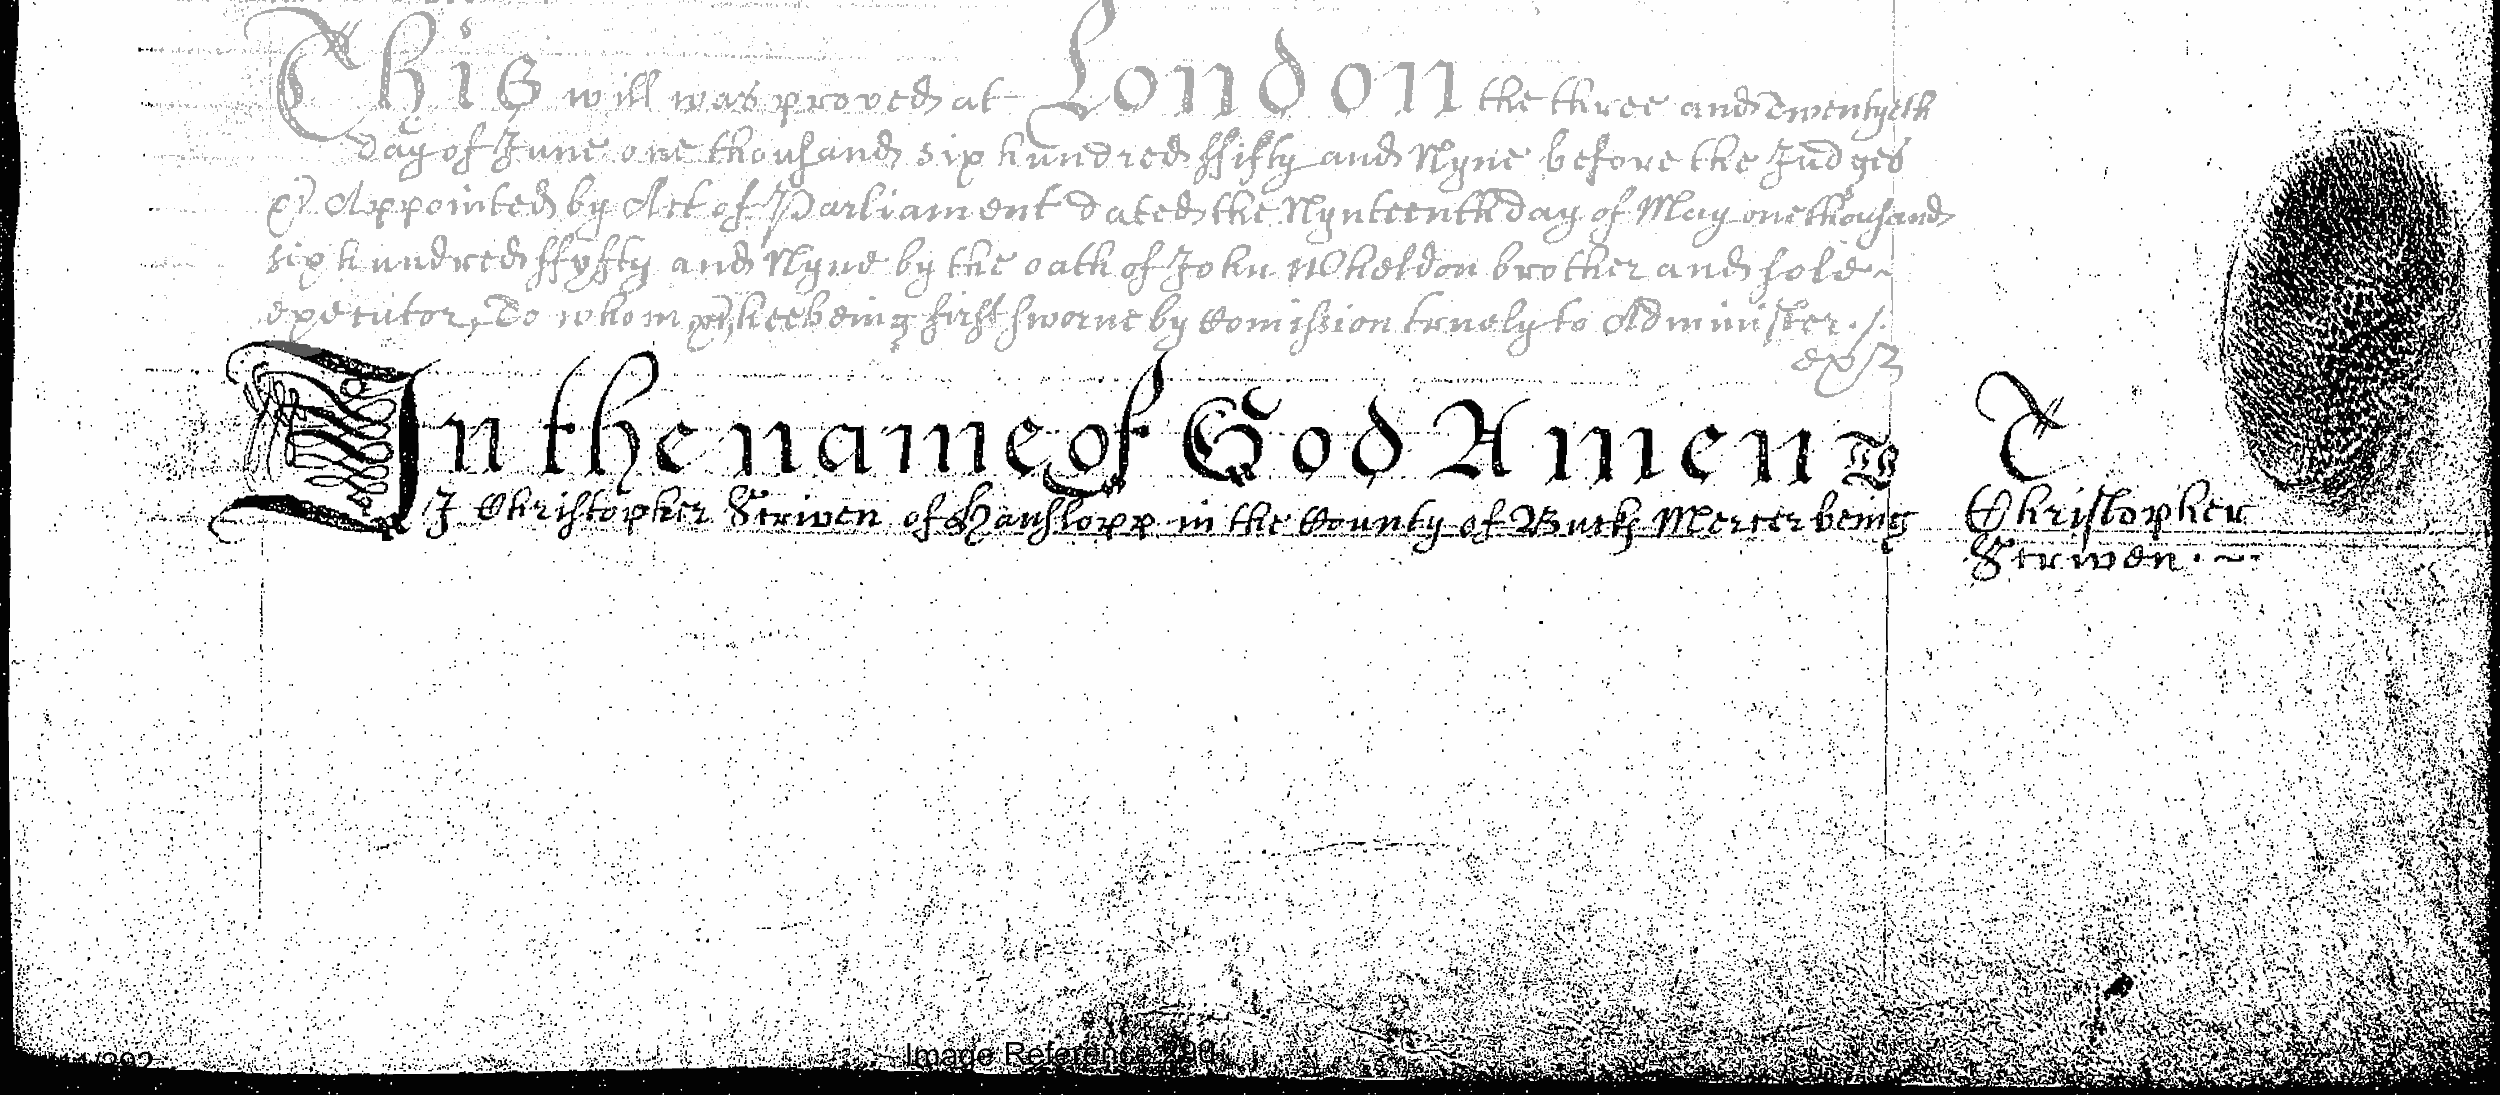 This will was proved at London the three and Twentyeth
day of June one thousand six hundred ffifty and Nyne before the Judges
Appointed by Act of Parliament Dated the Nynteenth day of May one thousand
six hundred ffyfty and Nyne by the oath of John Wheldon brother and sole
executor, To whom hee being first sworne by Comission truely to Administer ./.
In the name of God Amen
I Christopher Scriven of Hanslopp in the County of Bucks Mercer being
T
Christopher
Scriven . ~ .
Image Reference 290